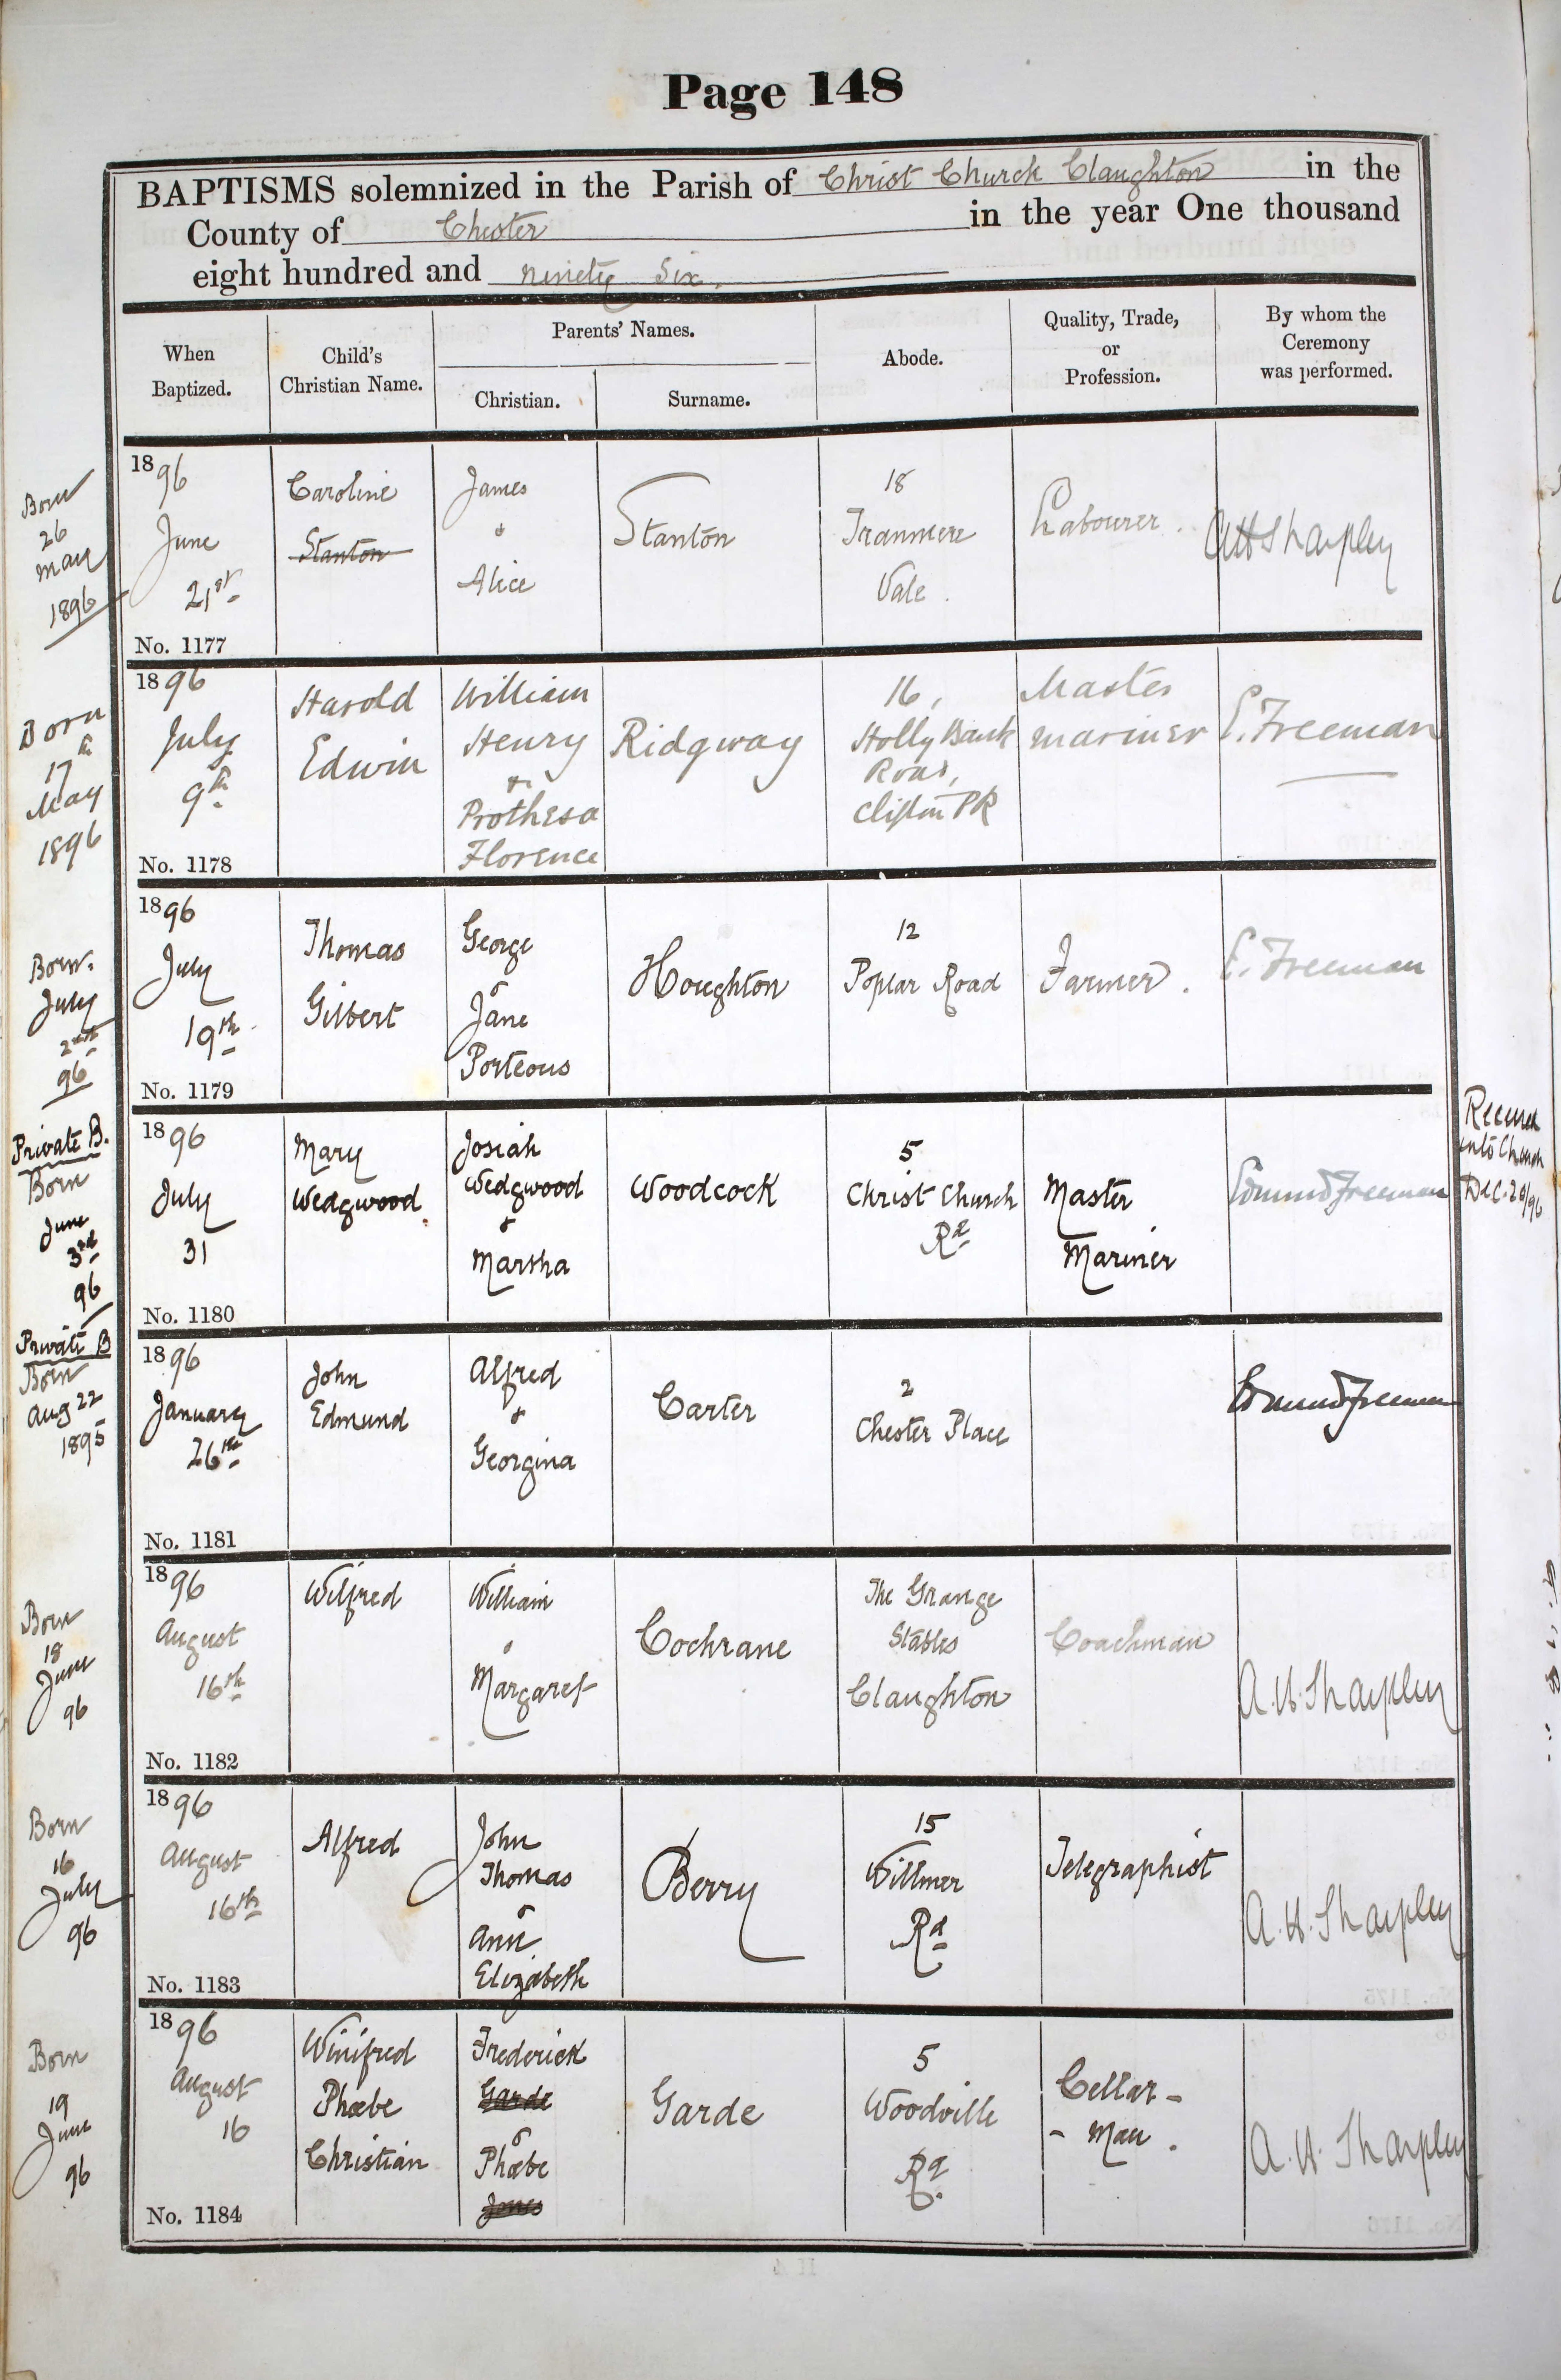 Page 148
BAPTISMS solemnized in the Parish of Christ Church Claughton in the
County of Chester in the year One thousand
eight hundred and ninety six.
When
Baptized.
Child's
Christian Name.
Parents' Names.
Christian.
Surname.
Abode.
Quality, Trade,
or
Profession.
By whom the
Ceremony
was performed.
Born
26
May
1896
1896
June
21st
No. 1177
Caroline
Stanton
James
&
Alice
Stanton
18
Tranmere
Vale.
Labourer.
A H Sharpley
Born
17th
May
1896
1896
July
9th
No. 1178
Harold
Edwin
William
Henry
&
Prothesa
Florence
Ridgway
16,
Holly Bank
Road,
Clifton PK
Master
Mariner
E. Freeman
Born.
July
2nd
96
1896
July
19th
No. 1179
Thomas
Gilbert
George
&
Jane
Porteous
Houghton
12
Poplar Road
Farmer.
E. Freeman
Private B.
Born
June
3rd
96
1896
July
31
No. 1180
Mary
Wedgwood
Josiah
Wedgwood
&
Martha
Woodcock
5
Christ Church
Rd
Master
Mariner
Edmund Freeman
Received
into Church
Dec. 20/96
Private B
Born
Aug 22
1895
1896
January
26th
No. 1181
John
Edmund
Alfred
&
Georgina
Carter
2
Chester Place
Edmund Freeman
Born
18
June
96
1896
August
16th
No. 1182
Wilfred
William
&
Margaret
Cochrane
The Grange
Stables
Claughton
Coachman
A. H. Sharpley
Born
16
July
96
1896
August
16th
No. 1183
Alfred
John
Thomas
&
Ann
Elizabeth
Berry
15
Willmer
Rd
Telegraphist
A. H. Sharpley
Born
19
June
96
1896
August
16
No. 1184
Winifred
Phœbe
Christian
Frederick
Garde
&
Phœbe
Jones
Garde
5
Woodville
Rd.
Cellar-
- Man.
A. H. Sharpley